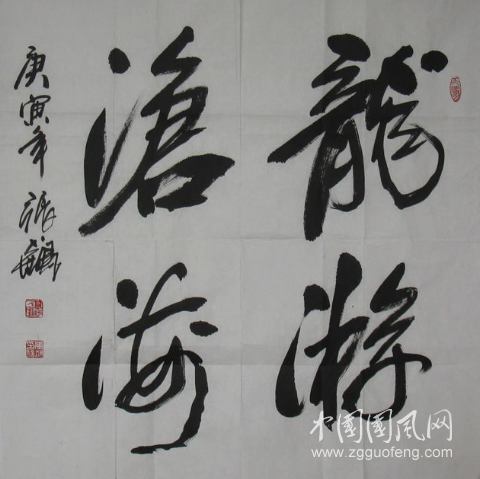 龍游
滄海
庚寅年
中国国风网
www.zgguofeng.com